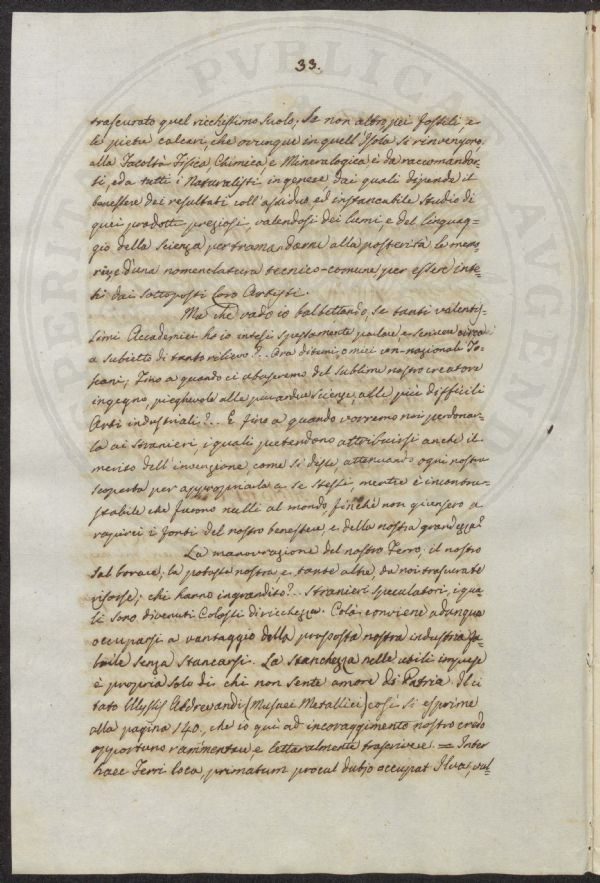 33.
trascurato quel ricchissimo suolo, Se non altro pei fossili, e
le pietre calcari, che ovunque in quell'Isola si rinvengono,
alla Facoltà Fisica Chimica, e Mineralogica è da raccomandar-
si, ed a tutti i Naturalisti in genere dai quali dipende il
benessere dei resultati coll'assiduo, ed instancabile studio di
quei prodotti preziosi, valendosi dei lumi, e del linguag-
gio della Scienza per tramandarne alla posterità le memo
rie, e d'una nomenclatura tecnico-comune per essere inte-
si dai sottoposti loro Artisti.
Ma che vado io balbettando, se tanti valentis-
simi Accademici ho io intesi spessamente parlare, e scrivere circa
a subietto di tanto rilievo?.. Ora ditemi, o miei con-nazionali To-
scani; Fino a quando ci abuseremo del sublime nostro creatore
ingegno, pieghevole alle più ardue scienze, alle più difficili
Arti industriali?.. E fino a quando vorremo noi perdonar-
la ai stranieri, i quali pretendono attribuirsi anche il
merito dell'invenzione, come si disse attenuando ogni nostra
scoperta per appropriarla a se stessi, mentre è incontra-
stabile che furono nulli al mondo, finchè non giunsero a
rapirci i fonti del nostro benessere, e della nostra grandezza?
La manovrazione del nostro Ferro, il nostro
Sal borace, la potassa nostra, e tante altre, da noi trascurate
risorse, chi hanno ingrandito?.. Stranieri speculatori, i qua
li sono divenuti Colossi di ricchezza. Colà conviene adunque
occuparsi a vantaggio della proposta nostra industria fa-
bile senza stancarsi. La stanchezza nelle utili imprese
è propria solo di chi non sente amore di Patria. Il ci
tato Ulyssis Aldrovandi (Musaei Metallici) così si esprime
alla pagina 140., che io qui ad incoraggimento nostro credo
opportuno rammentare, e letteralmente trascrivere. = Inter
haec Ferri loca primatum procul dubio occupat Ilva, vul-